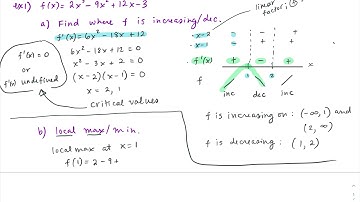 ex1) f(x) = 2x³ - 9x² + 12x - 3
a) Find where f is increasing/dec.
f'(x) = 6x² - 18x + 12
6x² - 18x + 12 = 0
x² - 3x + 2 = 0
(x-2)(x-1) = 0
x = 2, 1
critical values
f'(x) = 0
or
f'(x) undefined
linear
factors
x-2 - - +
x-1 - + +
f'(x) + - +
1 2 x
f
inc dec inc
f is increasing on: (-∞, 1) and
(2, ∞)
f is decreasing: (1, 2)
b) local max/min.
local max at x=1
f(1) = 2 - 9 +